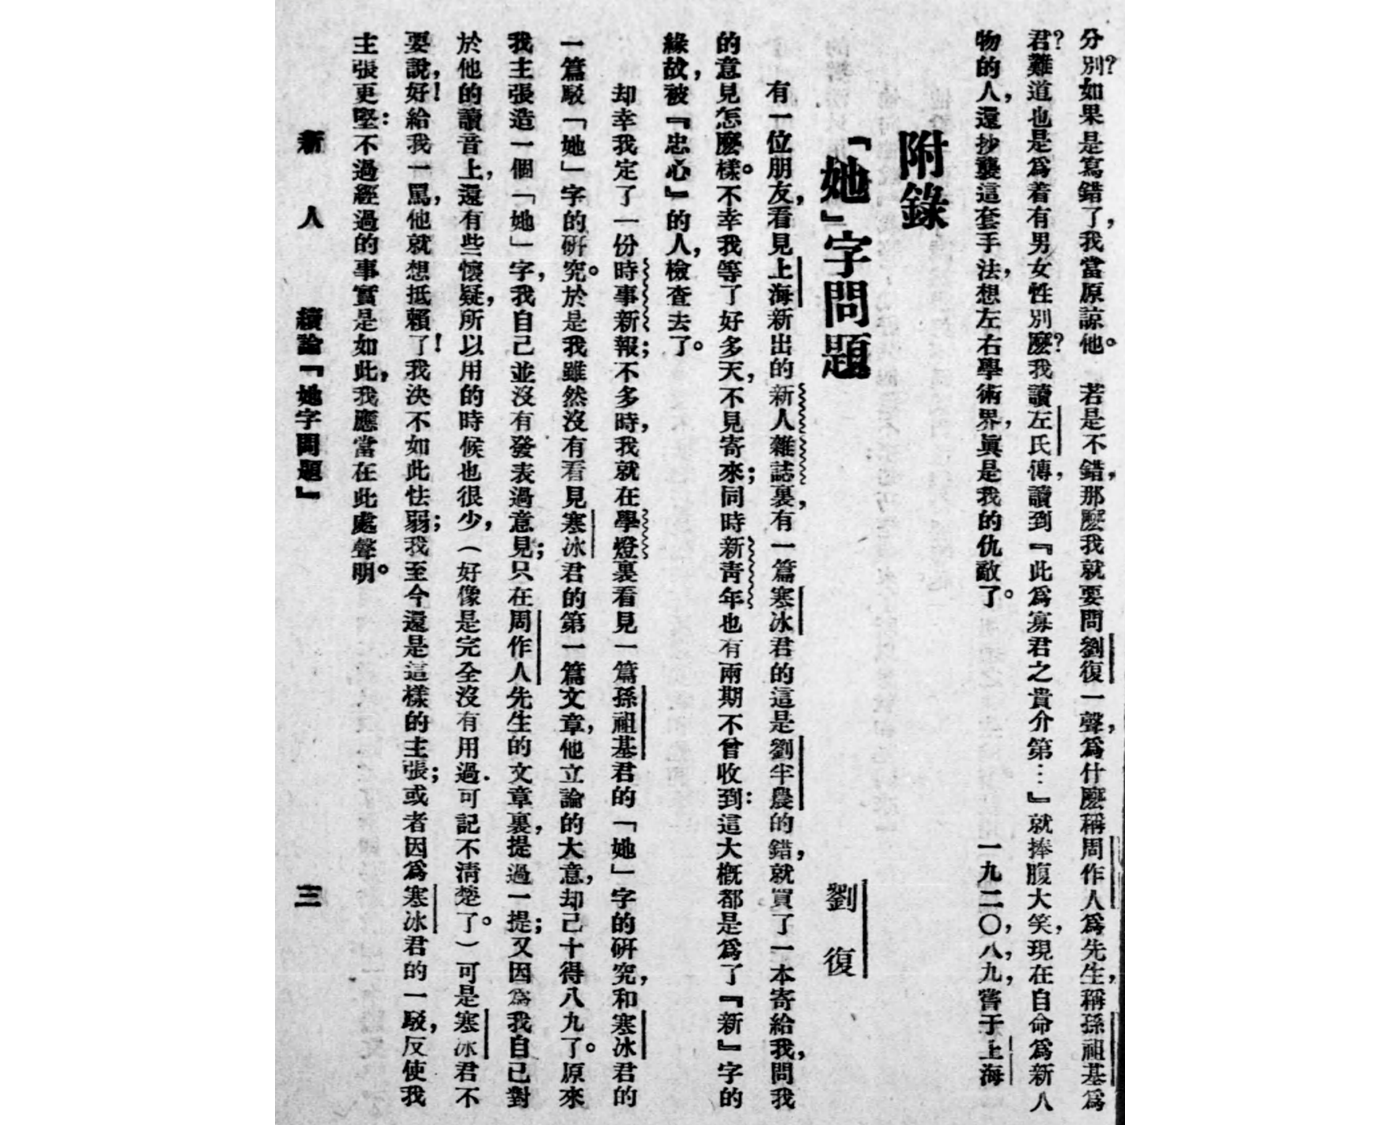 分別?如果是寫錯了,我當原諒他。 若是不錯,那麼我就要問劉復一聲,爲什麼稱周作人爲先生,稱孫祖基爲
君?難道也是爲着有男女性別麼?我讀左氏傳,讀到『此爲寡君之貴介第…』就捧腹大笑,現在自命爲新人
物的人,還抄襲這套手法,想左右學術界,眞是我的仇敵了。 一九二〇,八,九,嘗于上海
附錄
「她」字問題
劉復
有一位朋友,看見上海新出的新人雜誌裏,有一篇寒冰君的這是劉半農的錯,就買了一本寄給我,問我
的意見怎麼樣。不幸我等了好多天,不見寄來;同時新靑年也有兩期不曾收到:這大槪都是爲了『新』字的
緣故,被『忠心』的人,檢查去了。
却幸我定了一份時事新報;不多時,我就在學燈裏看見一篇孫祖基君的「她」字的研究,和寒冰君的
一篇駁「她」字的研究。於是我雖然沒有看見寒冰君的第一篇文章,他立論的大意,却己十得八九了。原來
我主張造一個「她」字,我自己並沒有發表過意見;只在周作人先生的文章裏,提過一提;又因爲我自己對
於他的讀音上,還有些懷疑,所以用的時候也很少,(好像是完全沒有用過.可記不清楚了。)可是寒冰君不
要說,好!給我一罵,他就想抵賴了!我決不如此怯弱;我至今還是這樣的主張;或者因爲寒冰君的一駁,反使我
主張更堅:不過經過的事實是如此,我應當在此處聲明。
新 人 續論『她字問題』 三